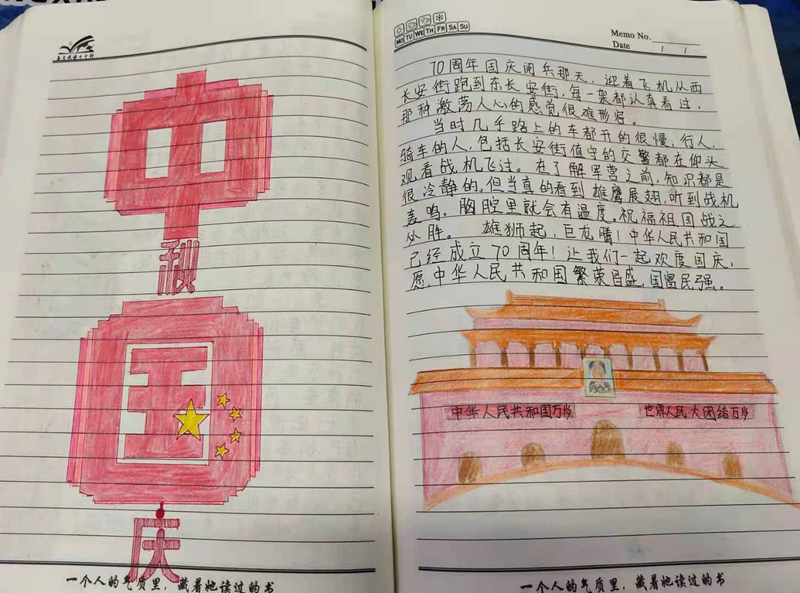 中
秋
国
庆
一个人的气质里，藏着她读过的书
MO TU WE TH FR SA SU
Memo No.
Date / /
70周年国庆阅兵那天，迎着飞机从西
长安街跑到东长安街，每一架都认真看过，
那种激荡人心的感觉很难形容。
当时几乎路上的车都开的很慢，行人，
骑车的人，包括长安街值守的交警都在仰头
观看战机飞过。在了解军营之前，知识都是
很冷静的，但当真的看到雄鹰展翅，听到战机
轰鸣，胸腔里就会有温度。祝福祖国战之
必胜。 雄狮起，巨龙腾！中华人民共和国
已经成立70周年！让我们一起欢度国庆，
愿中华人民共和国繁荣昌盛，国富民强。
中华人民共和国万岁
世界人民大团结万岁
一个人的气质里，藏着她读过的书